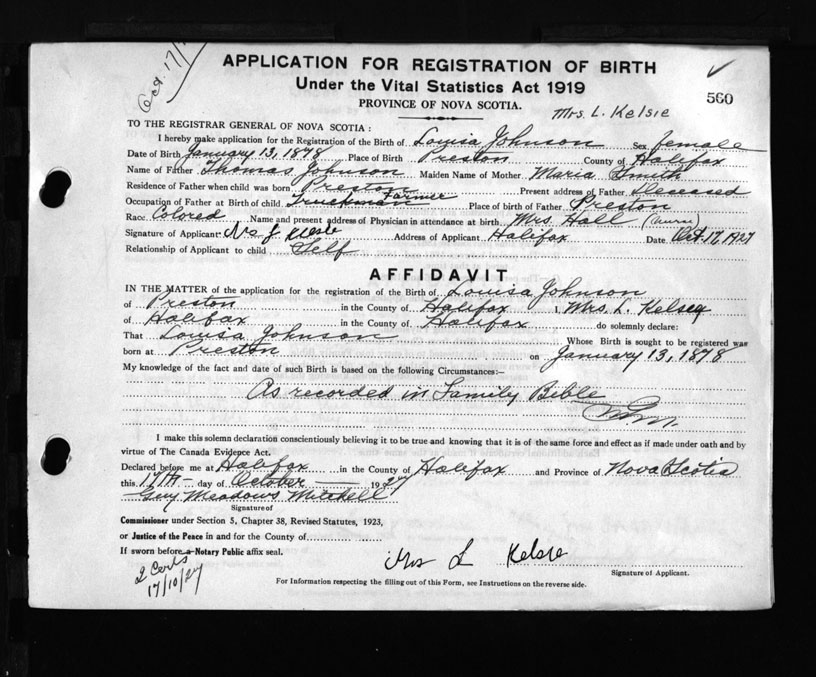 Oct. 17/
APPLICATION FOR REGISTRATION OF BIRTH
Under the Vital Statistics Act 1919
560
PROVINCE OF NOVA SCOTIA.
Mrs. L. Kelsie
TO THE REGISTRAR GENERAL OF NOVA SCOTIA:
I hereby make application for the Registration of the Birth of Louisa Johnson Sex female
Date of Birth January 13, 1878 Place of Birth Preston County of Halifax
Name of Father Thomas Johnson Maiden Name of Mother Maria Smith
Residence of Father when child was born Preston Present address of Father Deceased
Occupation of Father at Birth of child Truckman Farmer Place of birth of Father Preston
Race Colored Name and present address of Physician in attendance at birth Mrs. Hall (Nurse)
Signature of Applicant Address of Applicant Halifax Date Oct. 17, 1927
Relationship of Applicant to child Self
AFFIDAVIT
IN THE MATTER of the application for the registration of the Birth of Louisa Johnson
of Preston in the County of Halifax I, Mrs. L. Kelsey
of Halifax in the County of Halifax do solemnly declare:
That Louisa Johnson Whose Birth is sought to be registered was
born at Preston on January 13, 1878
My knowledge of the fact and date of such Birth is based on the following Circumstances:—
As recorded in Family Bible
I make this solemn declaration conscientiously believing it to be true and knowing that it is of the same force and effect as if made under oath and by
virtue of The Canada Evidence Act.
Declared before me at Halifax in the County of Halifax and Province of Nova Scotia
this 17th day of October 1927
Guy Meadows Mitchell
Signature of
Commissioner under Section 5, Chapter 38, Revised Statutes, 1923,
or Justice of the Peace in and for the County of
If sworn before a Notary Public affix seal.
Mrs L Kelsie
Signature of Applicant.
2 Certs
17/10/27
For Information respecting the filling out of this Form, see Instructions on the reverse side.